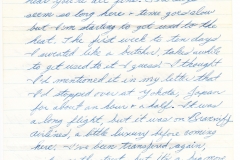 hear you're all fine.
seem so long here & time goes slow
but I'm starting to get used to the
heat. The first week to ten days
I sweated like a butcher, takes awhile
to get used to it I guess. I thought
I'd mentioned it in my letter that
I'd stopped over at Yokota, Japan
for about an hour & a half. It was
a long flight, but it was on
airlines, a little luxury before coming
here. I've been transferred again,
but it's a